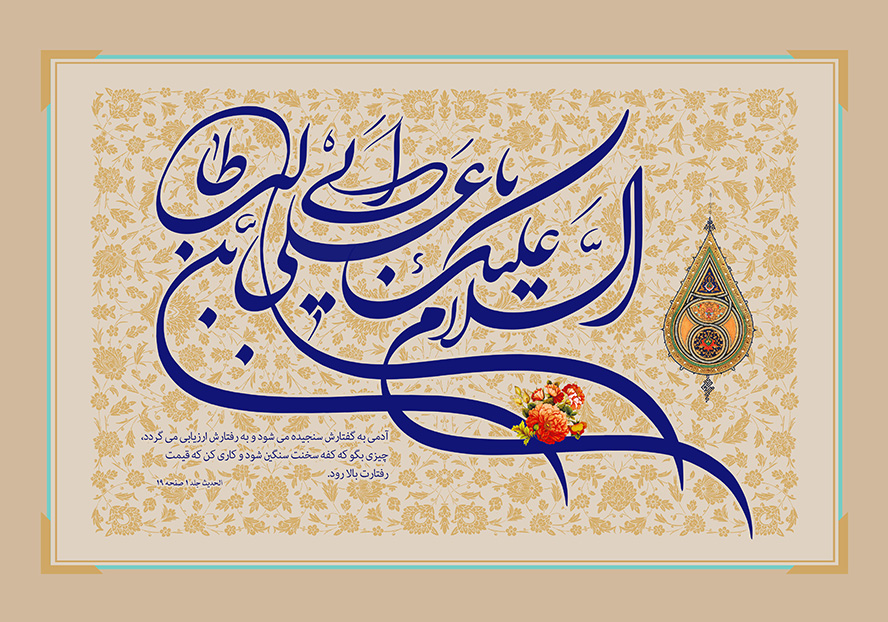 السلام علیک یا علی بن ابی طالب
آدمی به گفتارش سنجیده می شود و به رفتارش ارزیابی می گردد،
چیزی بگو که کفه سخنت سنگین شود و کاری کن که قیمت
رفتارت بالا رود.
الحدیث جلد ۱ صفحه ۱۹